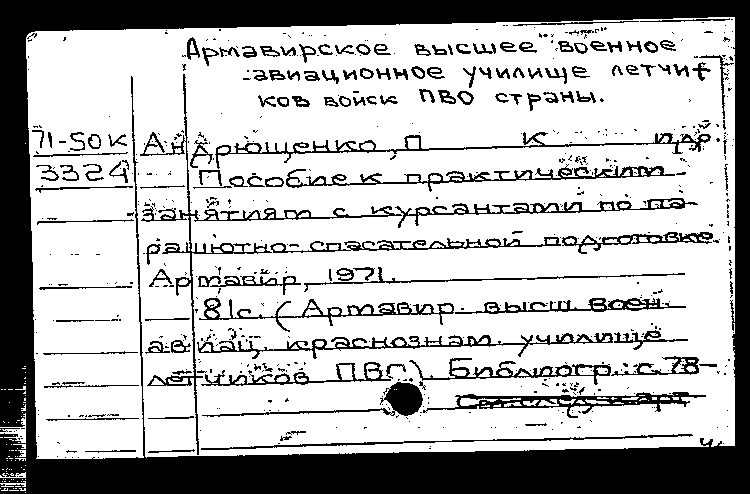 Армавирское высшее военное
авиационное училище летчи
ков войск ПВО страны.
71-50к Андрющенко, П К и др.
3324 Пособие к практическим
занятиям с курсантами по па-
рашютно-спасательной подготовке.
Армавир, 1971.
81с. (Армавир. высш. воен.
авиац. краснознам. училище
летчиков ПВО). Библиогр.: с. 78
См. след. карт